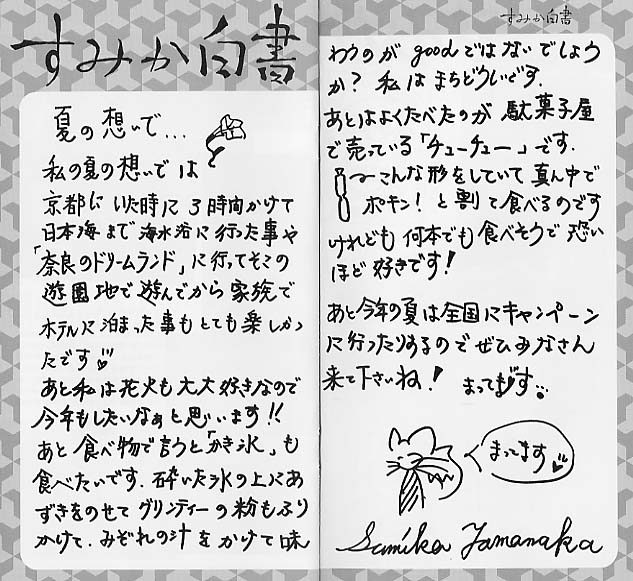 すみか白書
夏の想いで…
私の夏の想いでは
京都にいた時に3時間かけて
日本海まで海水浴に行った事や
「奈良のドリームランド」に行ってそこの
遊園地で遊んでから家族で
ホテルに泊まった事もとても楽しかっ
たです
あと私は花火も大大好きなので
今年もしたいなぁと思います!!
あと食べ物で言うと「かき氷」も
食べたいです.砕いた氷の上にあ
ずきをのせてグリンティーの粉もふり
かけて.みぞれの汁をかけて味
すみか白書
わうのがgoodではないでしょう
か?私はまちどうしいです.
あとはよくたべたのが駄菓子屋
で売っている「チューチュー」です.
こんな形をしていて真ん中で
ポキン!と割って食べるのです
けれども何本でも食べそうで恐い
ほど好きです!
あと今年の夏は全国にキャンペーン
に行ったりするのでぜひみなさん
来て下さいね!まってます
まってます
Sumika Yamanaka